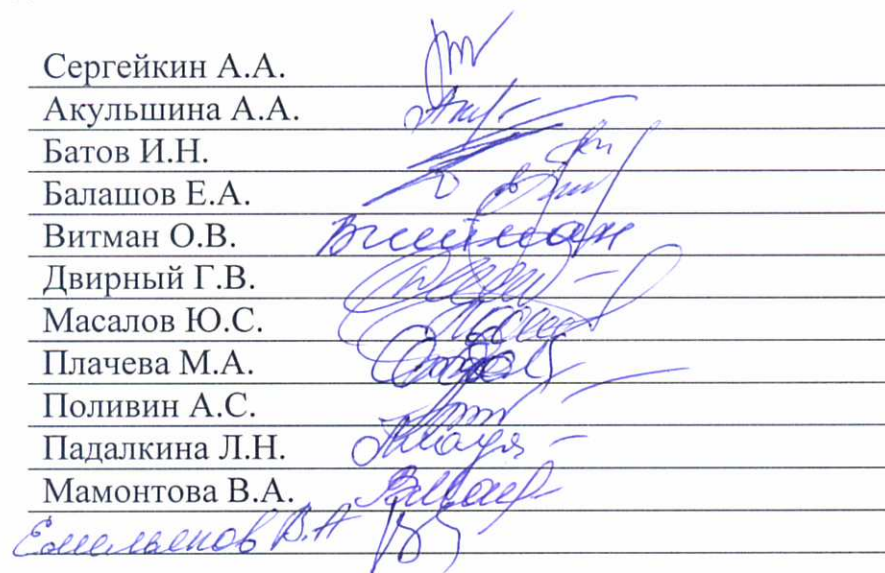 Сергейкин А.А.
Акульшина А.А.
Батов И.Н.
Балашов Е.А.
Витман О.В. Витман
Двирный Г.В.
Масалов Ю.С.
Плачева М.А.
Поливин А.С.
Падалкина Л.Н.
Мамонтова В.А.
Емельянов В.А